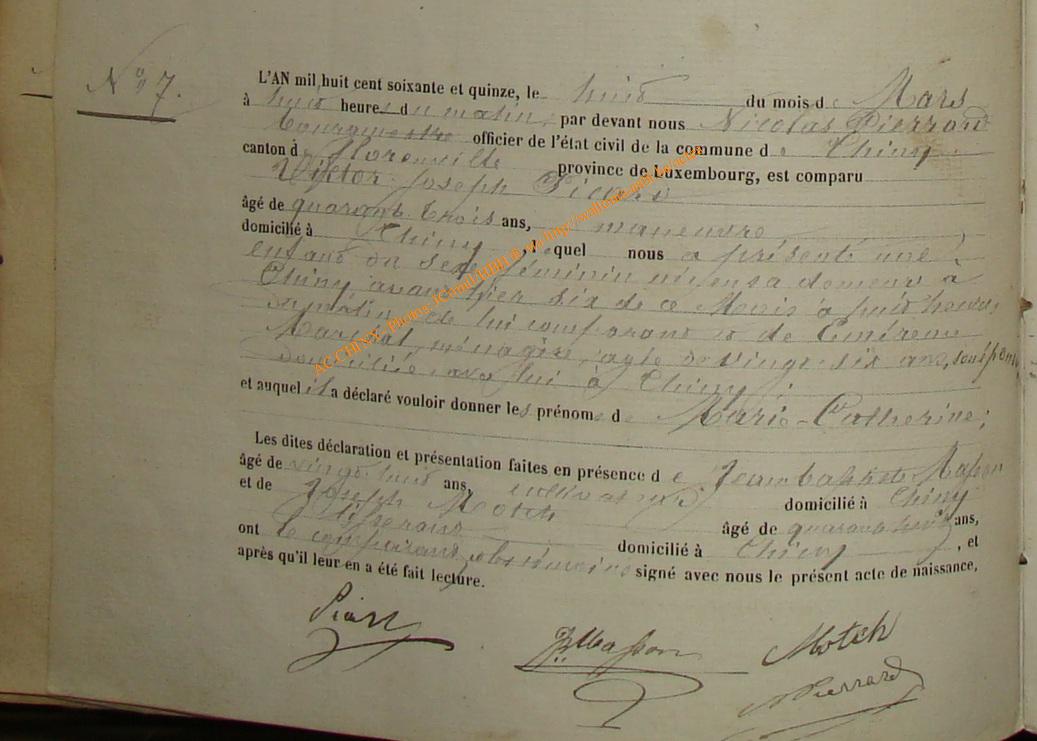 N° 7.
L'AN mil huit cent soixante et quinze, le huit du mois de Mars
à huit heures du matin, par devant nous Nicolas Pierrard
bourgmestre officier de l'état civil de la commune de Chiny
canton de Florenville province de Luxembourg, est comparu
Victor Joseph
âgé de quarante trois ans, manœuvre
domicilié à Chiny, lequel nous a présenté une
enfant du sexe féminin née en sa demeure à
Chiny avant hier six de ce Mois à huit heures
du matin, de lui comparant et de
ménagère, âgée de vingt six ans, son épouse
domiciliée avec lui à Chiny;
et auquel il a déclaré vouloir donner les prénoms de Marie-Catherine;
Les dites déclaration et présentation faites en présence de Jean baptiste Masson
âgé de vingt huit ans, cultivateur domicilié à Chiny
et de Joseph Motch
tisserand âgé de ans,
domicilié à Chiny, et
ont le comparant et les témoins signé avec nous le présent acte de naissance,
après qu'il leur en a été fait lecture.
JBMasson
Motch
N Pierrard